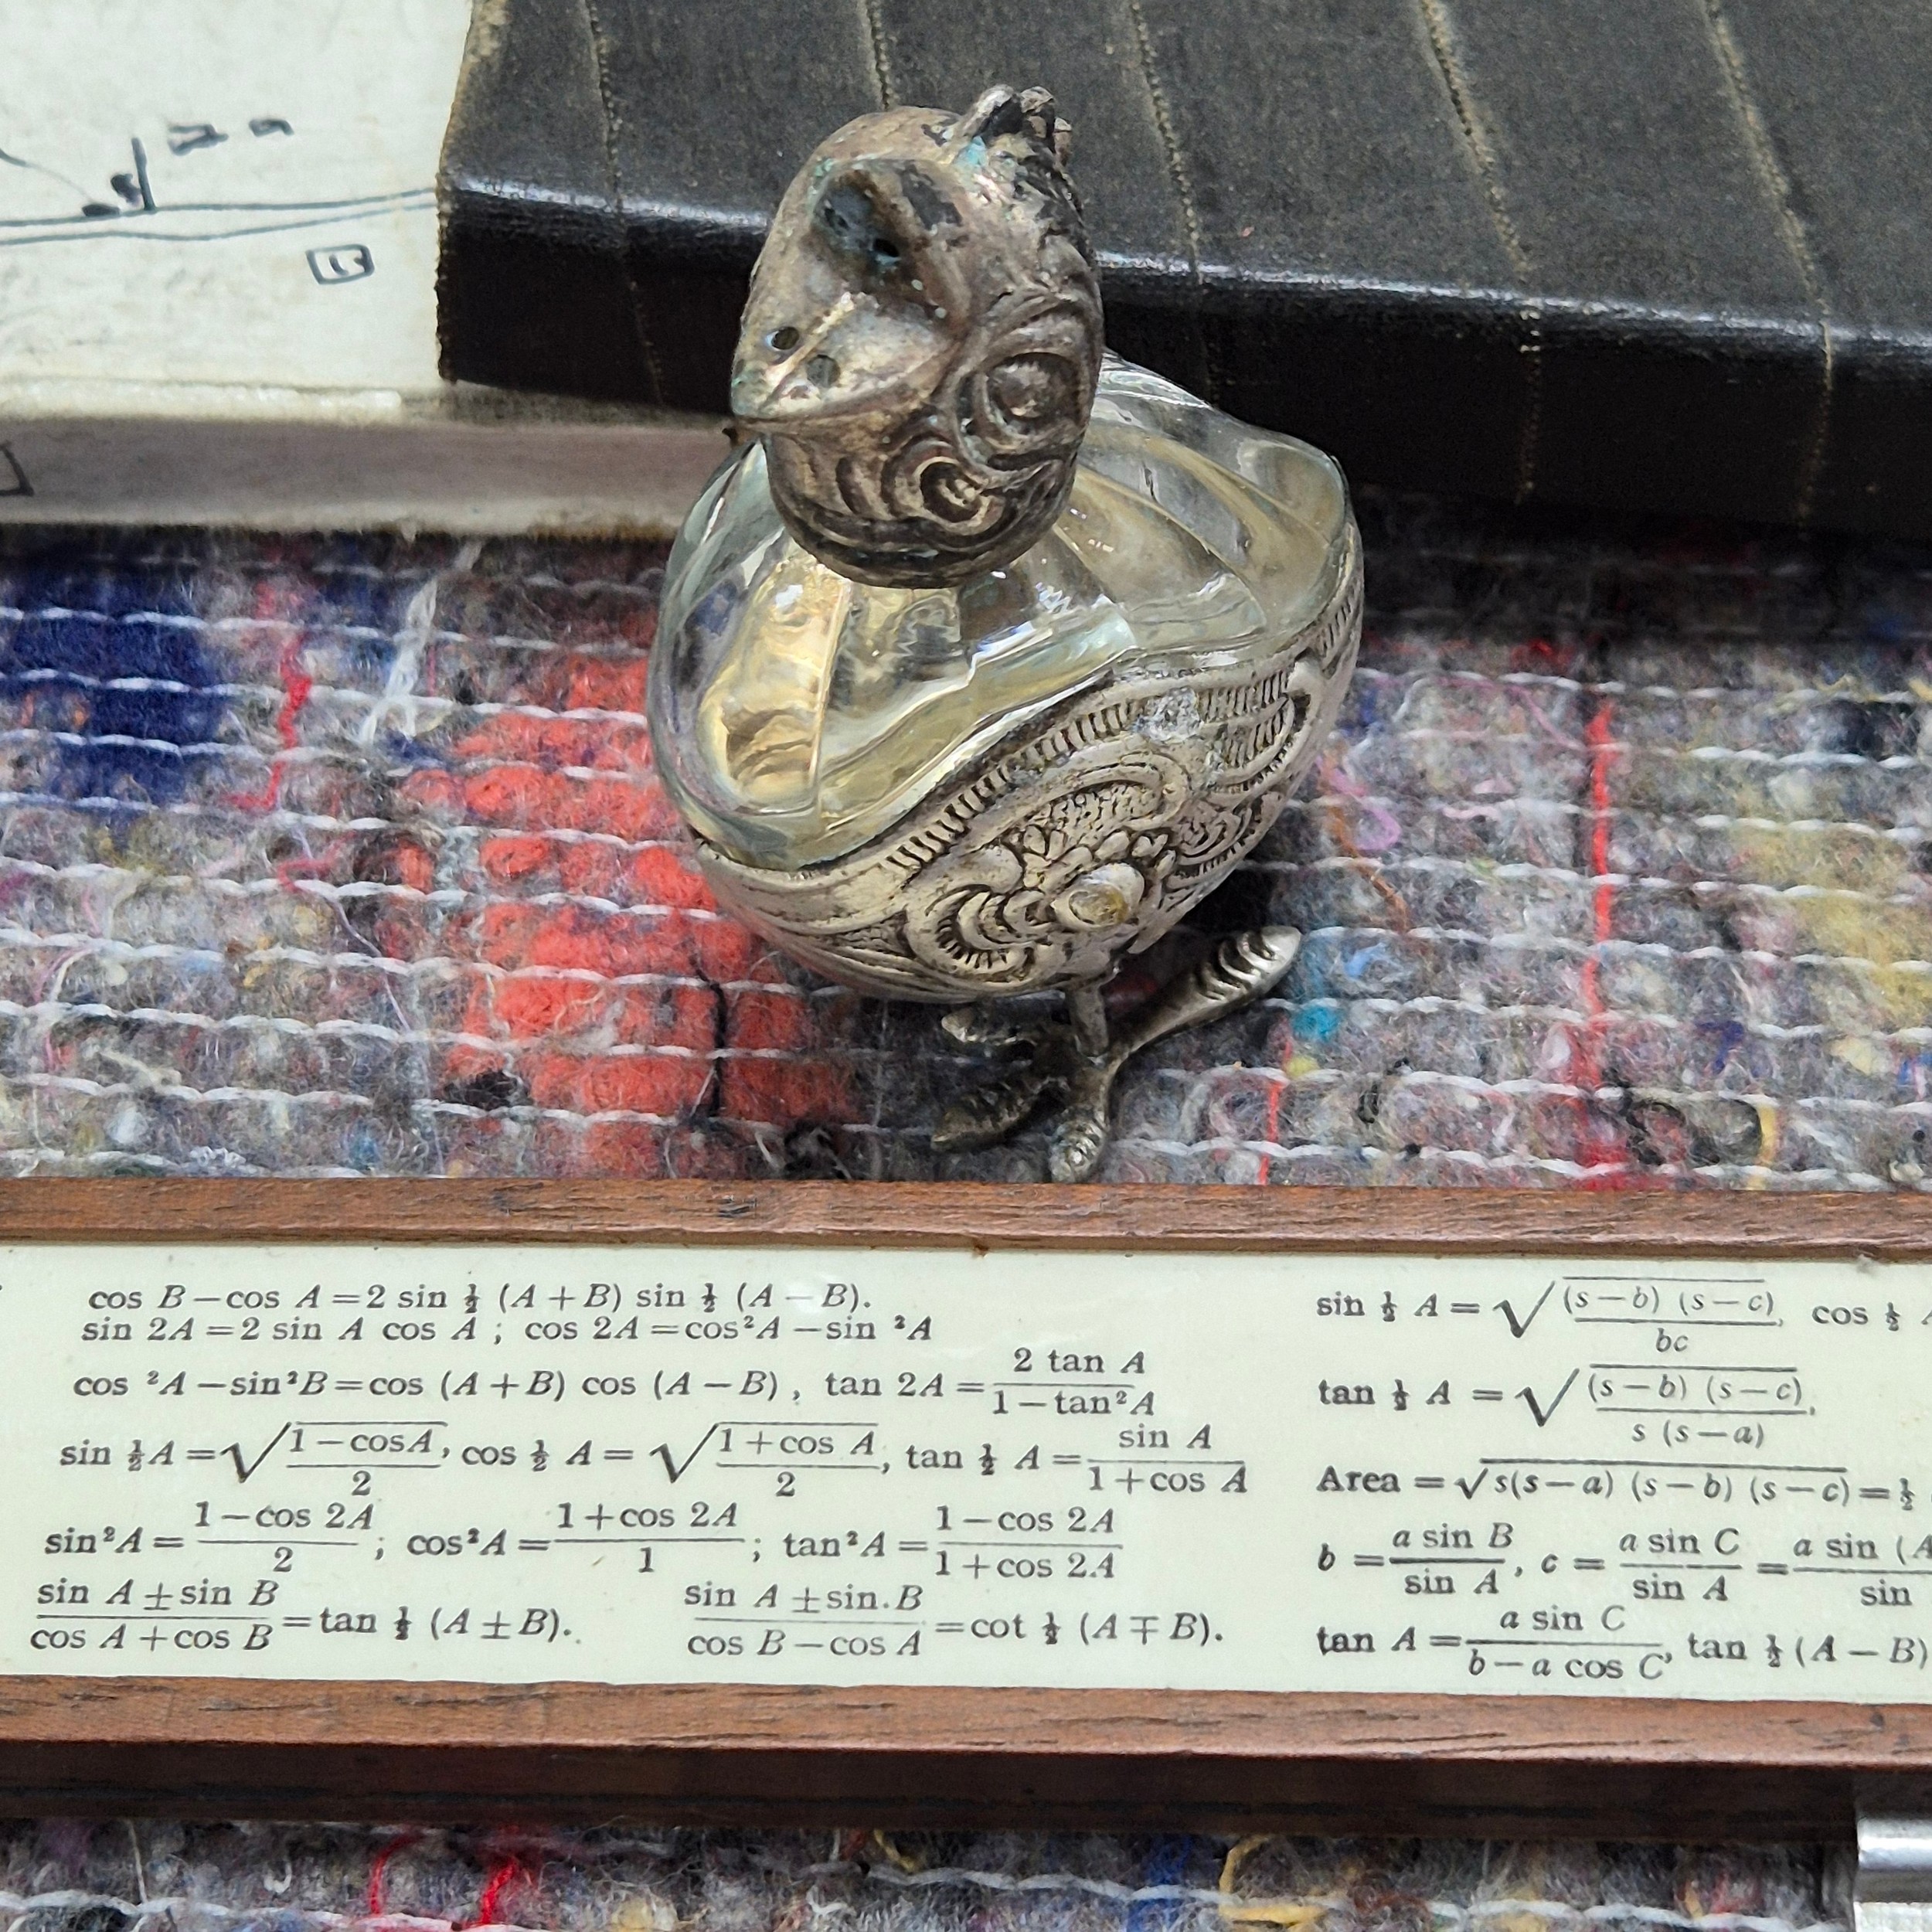 cos B−cos A=2 sin ½ (A+B) sin ½ (A−B).
sin 2A=2 sin A cos A ; cos 2A=cos²A−sin ²A
cos ²A−sin²B=cos (A+B) cos (A−B) , tan 2A = 2 tan A / 1−tan²A
sin ½A = √1−cosA / 2 , cos ½ A = √1+cos A / 2 , tan ½ A = sin A / 1+cos A
sin²A = 1−cos 2A / 2 ; cos²A = 1+cos 2A / 1 ; tan²A = 1−cos 2A / 1+cos 2A
sin A ± sin B / cos A+cos B = tan ½ (A±B). sin A ± sin.B / cos B−cos A = cot ½ (A∓B).
sin ½ A = √(s−b) (s−c) / bc , cos ½
tan ½ A = √(s−b) (s−c) / s (s−a) ,
Area = √s(s−a) (s−b) (s−c) = ½
b = a sin B / sin A , c = a sin C / sin A = a sin (A / sin
tan A = a sin C / b−a cos C , tan ½ (A−B)